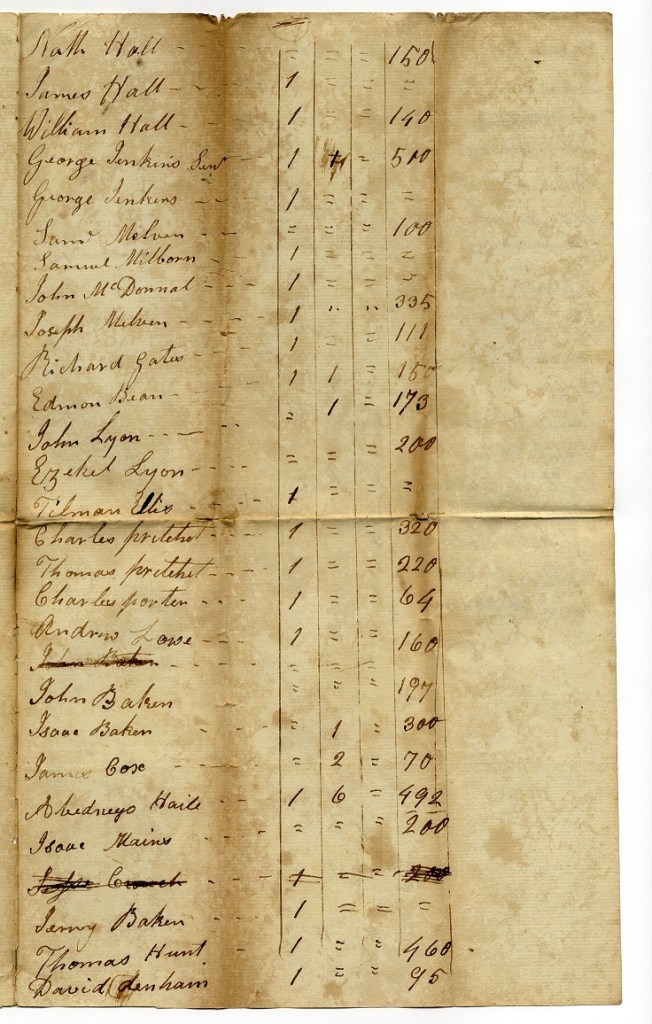 Nath Hall - = = = 150
James Hall - - - 1 = = =
William Hall - 1 = = 140
George Jenkins Senr 1 = 500
George Jenkens - - 1 = = =
Saml Melven - - = = = 100
Samuel Milborn - - 1 = = =
John McDonnal - - - 1 = = =
Joseph Melven - - - 1 " " 335
Richard Gates - - - 1 = = 111
Edmon Bean - - - 1 1 = 150
John Lyon - - - = 1 = 173
Ezekel Lyon - - = = = 200
Tilman Ellis - - 1 = = =
Charles pritchet - - 1 = = 320
Thomas pritchet - - 1 = = 220
Charles porter - - - 1 = = 64
Andrew Lowe - - - 1 = = 160
John Baken
John Baken - - " " " 197
Isaac Baken - - - = 1 = 300
James Cox - - = 2 = 70
Abednego Haile - - 1 6 = 492
Isaac Mains - - = " = 200
Crouch - - 1 = = 200
Jerny Baken - - 1 = = =
Thomas Hunt - - 1 = = 460
David denham - - 1 = = 95